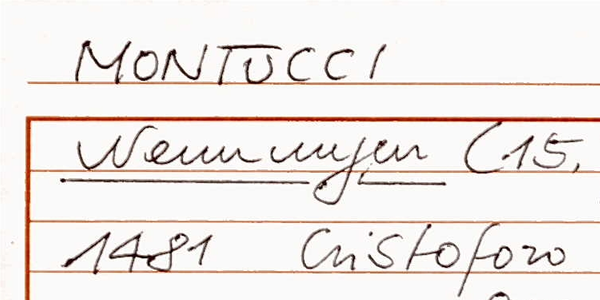 MONTUCCI
Nennungen (15.
1481 Cristoforo